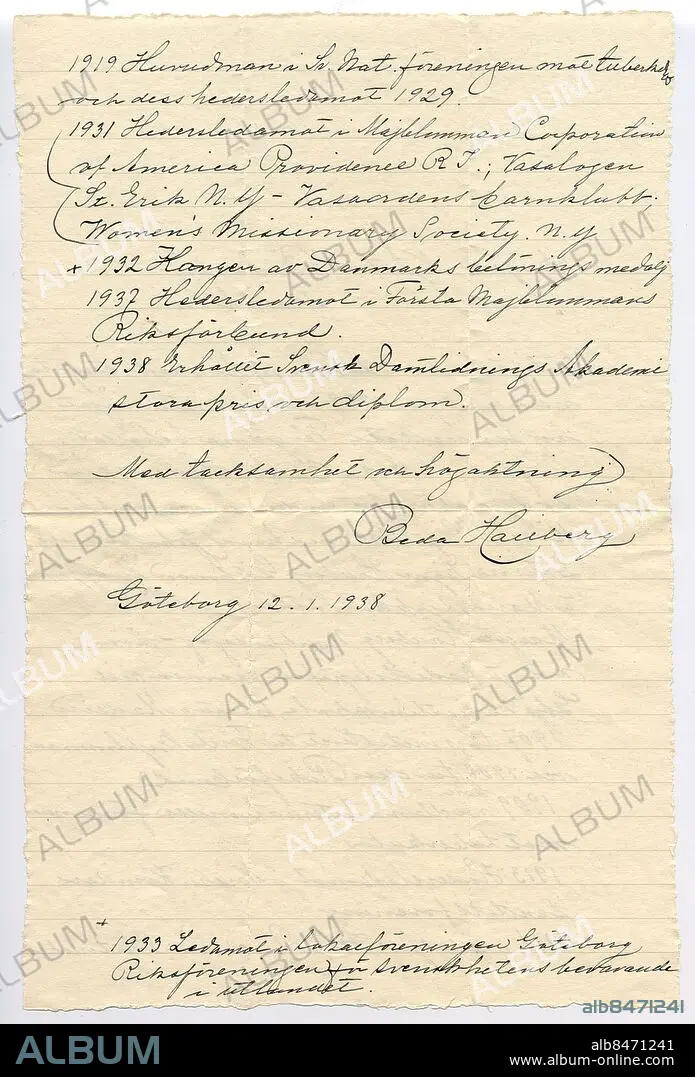 1919 Huvudman i Sv. Nat. föreningen mot tuberkulos
och dess hedersledamot 1929.
1931 Hedersledamot i Majblomman Corporation
of America Providence R I.; Vasalogen
St. Erik N. Y - Vasaordens barnklubb.
Women's Missionary Society. N. y
+ 1932 Kongen av Danmarks belönings medalj
1937 Hedersledamot i Första Majblommans
Riksförbund.
1938 Erhållit Svensk Damtidnings Akademi
stora pris och diplom.
Med tacksamhet och högaktning
Beda Hallberg
Göteborg 12. 1. 1938
+
1933 Ledamot i lokalföreningen Göteborg
Riksföreningen för svenskhetens bevarande
i utlandet.
alb8471241
ALBUM
alb8471241
www.album-online.com